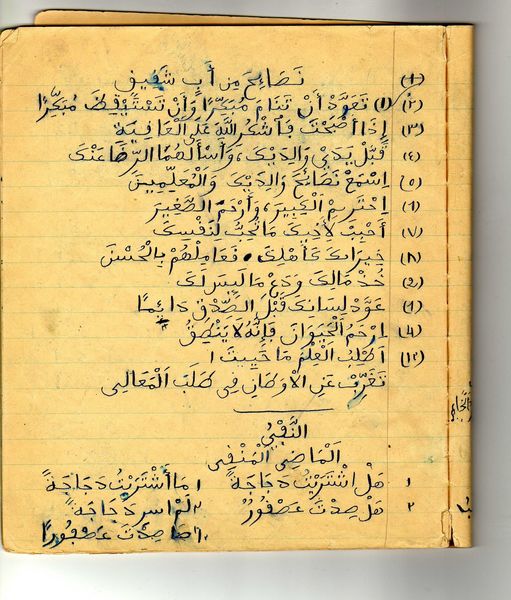 (١) نَصَائِحَ مِن أَبٍ شَفِيقٍ
(٢) (١) تَعَوَّدْ أَنْ تَنَامَ مُبَكِّرًا وَأَنْ تَسْتَيْقِظَ مُبَكِّرًا
(٣) إِذَا أَصْبَحْتَ فَاشْكُرِ اللَّهَ عَلَى الْعَافِيَةِ
(٤) قَبِّلْ يَدَيْ وَالِدَيْكَ، وَاسْأَلْهُمَا الرِّضَا عَنْكَ
(٥) اِسْمَعْ نَصَائِحَ وَالِدَيْكَ وَالْمُعَلِّمِينَ
(٦) اِحْتَرِمِ الْكَبِيرَ، وَارْحَمِ الصَّغِيرَ
(٧) أَحْبِبْ لِأَخِيكَ مَا تُحِبُّ لِنَفْسِكَ
(٨) جِيرَانكَ كَأَهْلِكَ . فَعَامِلْهُمْ بِالْحُسْنَ
(٩) خُذْ مَالَكَ وَدَعْ مَا لَيْسَ لَكَ
عَوِّدْ لِسَانَكَ قَبْلَ الصِّدْقِ دَائِمًا
اِرْحَمِ الْحَيَوَانَ فَإِنَّهُ لَا يَنْطِقُ
(١٢) اُطْلُبِ الْعِلْمَ مَا حَيِيتَ ا
تَغَرَّبْ عَنِ الْاوْطَانِ فِي طَلَبِ الْمَعَالِي
النَّفْيُ
الْمَاضِي الْمَنْفِي
١ هَلْ اشْتَرَيْتَ دَجَاجَةً ١ مَا أَشْتَرَيْتُ دَجَاجَةً
٢ هَلْ صِدْتَ عَصْفُورٌ ٢ لَمْ دَجَاجَةً
مَا صِدْتُ عَصْفُورًا